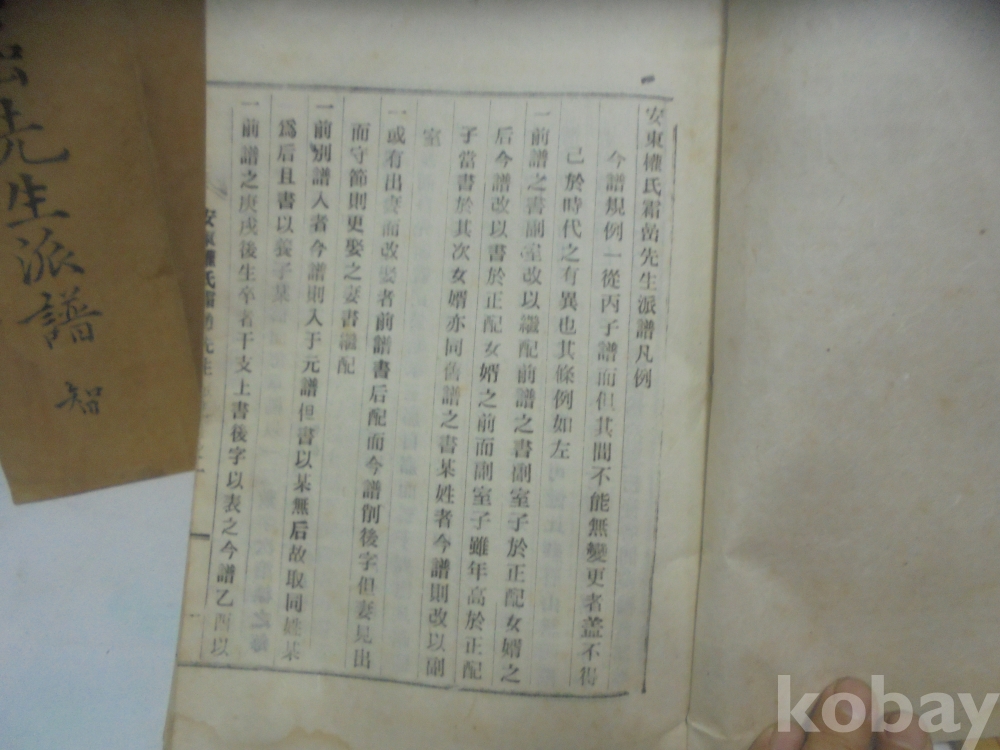 安東權氏霜嵒先生派譜凡例
今譜規例一從丙子譜而但其間不能無變更者盖不得
已於時代之有異也其條例如左
一前譜之書副室改以繼配前譜之書副室子於正配女婿之
后今譜改以書於正配女婿之前而副室子雖年高於正配
子當書於其次女婿亦同舊譜之書某姓者今譜則改以副
室
一或有出妻而改娶者前譜書后配而今譜削後字但妻見出
而守節則更娶之妻書繼配
一前別譜入者今譜則入于元譜但書以某無后故取同姓某
爲后且書以養子某
一前譜之庚戌後生卒者干支上書後字以表之今譜乙酉以
安東權氏霜嵒先生
先生派譜 智
kobay